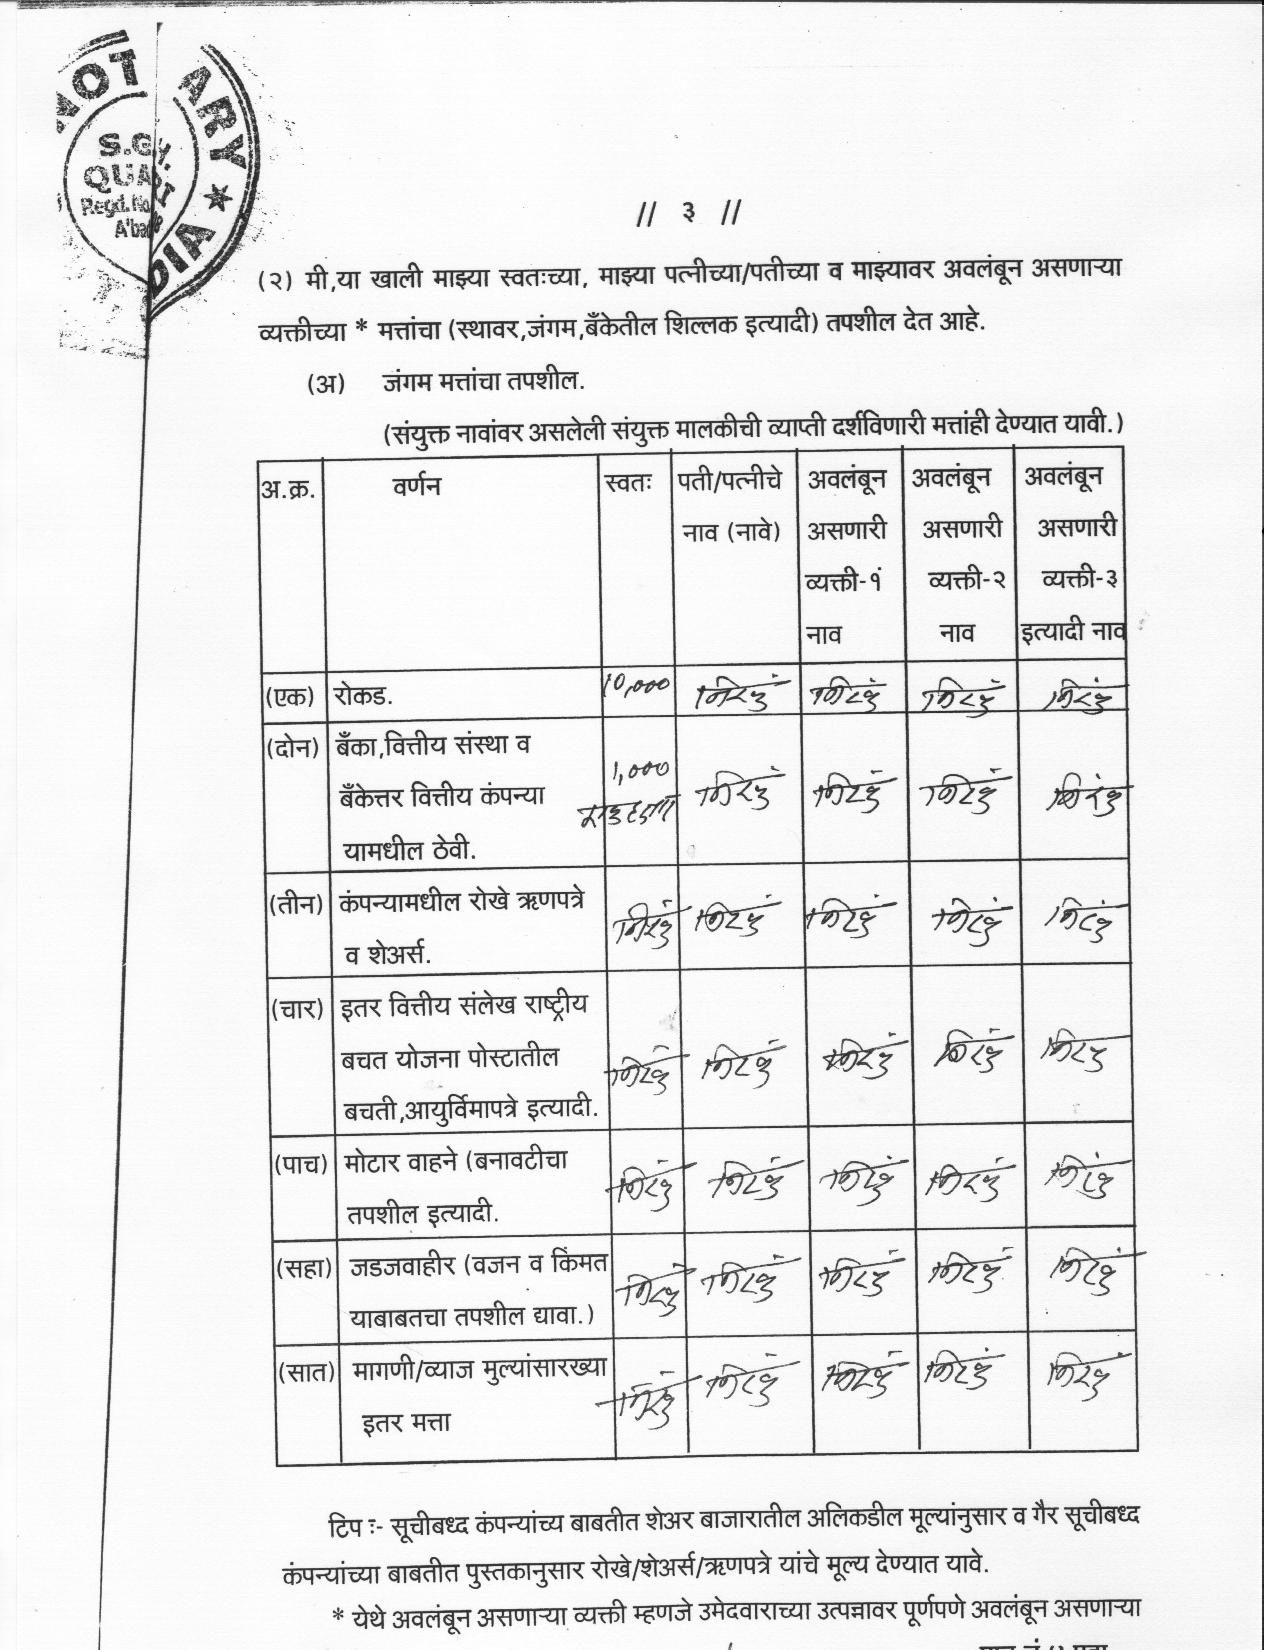 NOTARY
S.G.M.
QUADRI
Regd. No.
A'bad
DIA
// ३ //
(२) मी,या खाली माझ्या स्वतःच्या, माझ्या पत्नीच्या/पतीच्या व माझ्यावर अवलंबून असणाऱ्या
व्यक्तीच्या * मत्तांचा (स्थावर,जंगम,बँकेतील शिल्लक इत्यादी) तपशील देत आहे.
(अ) जंगम मत्तांचा तपशील.
(संयुक्त नावांवर असलेली संयुक्त मालकीची व्याप्ती दर्शविणारी मत्तांही देण्यात यावी.)
अ.क्र. वर्णन स्वतः पती/पत्नीचे अवलंबून अवलंबून अवलंबून
नाव (नावे) असणारी असणारी असणारी
व्यक्ती-१ व्यक्ती-२ व्यक्ती-३
नाव नाव इत्यादी नाव
(एक) रोकड. 10,000 निरंक निरंक निरंक निरंक
(दोन) बँका,वित्तीय संस्था व
1,000
बँकेत्तर वित्तीय कंपन्या निरंक निरंक निरंक निरंक
यामधील ठेवी.
(तीन) कंपन्यामधील रोखे ऋणपत्रे निरंक निरंक निरंक निरंक निरंक
व शेअर्स.
(चार) इतर वित्तीय संलेख राष्ट्रीय
बचत योजना पोस्टातील निरंक निरंक निरंक निरंक निरंक
बचती,आयुर्विमापत्रे इत्यादी.
(पाच) मोटार वाहने (बनावटीचा निरंक निरंक निरंक निरंक निरंक
तपशील इत्यादी.
(सहा) जडजवाहीर (वजन व किंमत निरंक निरंक निरंक निरंक निरंक
याबाबतचा तपशील द्यावा.)
(सात) मागणी/व्याज मुल्यांसारख्या निरंक निरंक निरंक निरंक निरंक
इतर मत्ता
टिप ः- सूचीबध्द कंपन्यांच्य बाबतीत शेअर बाजारातील अलिकडील मूल्यांनुसार व गैर सूचीबध्द
कंपन्यांच्या बाबतीत पुस्तकानुसार रोखे/शेअर्स/ऋणपत्रे यांचे मूल्य देण्यात यावे.
* येथे अवलंबून असणाऱ्या व्यक्ती म्हणजे उमेदवाराच्या उत्पन्नावर पूर्णपणे अवलंबून असणाऱ्या